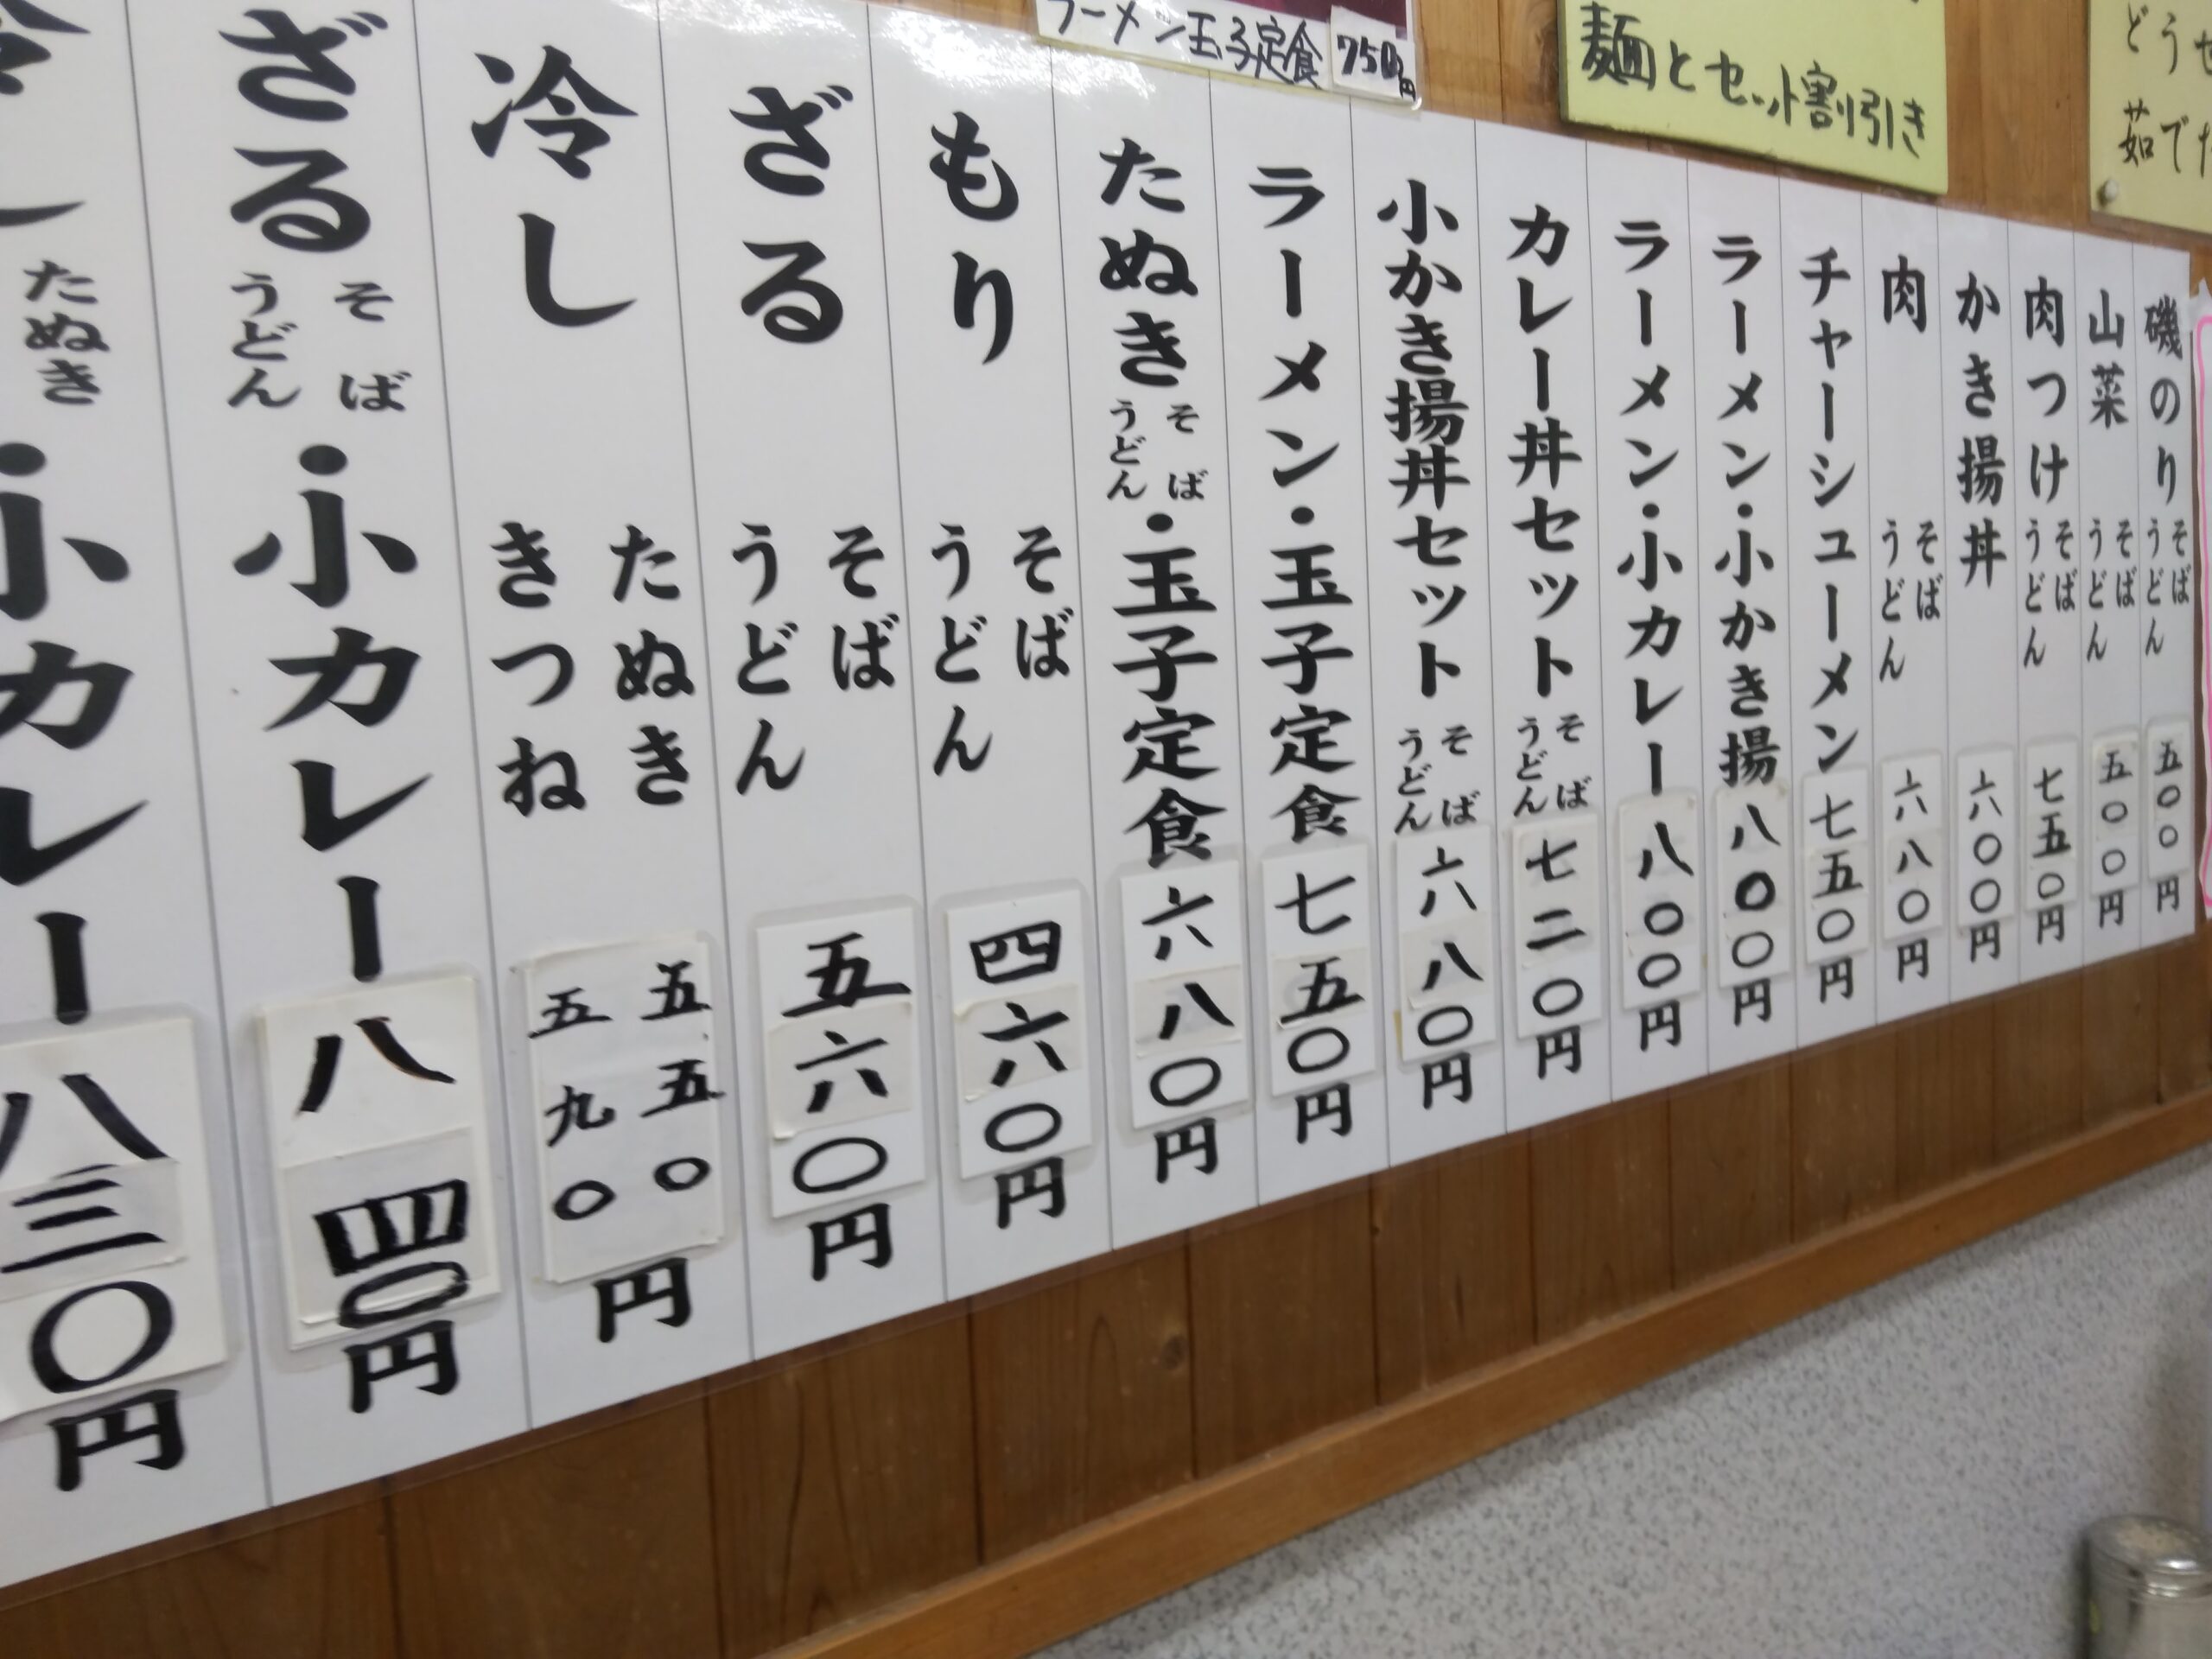 ラーメン玉子定食 750円
麺とセット割引き
どうせ
茹でた
磯のり そば うどん 五〇〇円
山菜 そば うどん 五〇〇円
肉つけ そば うどん 七五〇円
かき揚丼 六〇〇円
肉 そば うどん 六八〇円
チャーシューメン 七五〇円
ラーメン・小かき揚 八〇〇円
ラーメン・小カレー 八〇〇円
カレー丼セット そば うどん 七二〇円
小かき揚丼セット そば うどん 六八〇円
ラーメン・玉子定食 七五〇円
たぬき そば うどん・玉子定食 六八〇円
もり そば うどん 四六〇円
ざる そば うどん 五六〇円
冷し たぬき きつね 五五〇 五九〇 円
ざる そば うどん・小カレー 八四〇円
冷し たぬき・小カレー 八三〇円